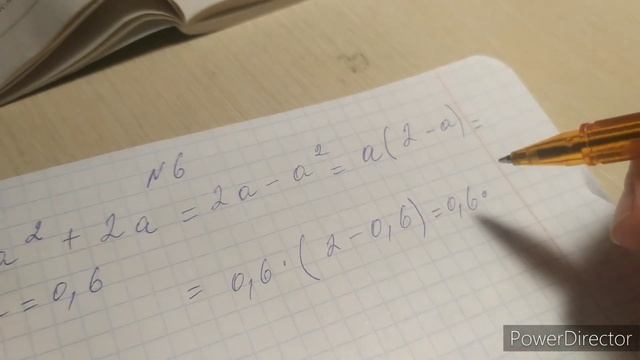 N6
a² + 2a = 2a - a² = a(2-a) =
= 0,6
= 0,6 · (2-0,6) = 0,6 ·
PowerDirector